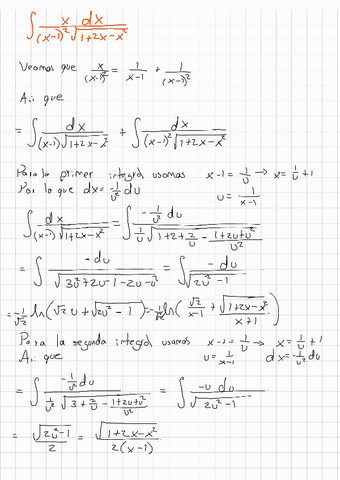 ∫ x dx / (x-1)² √(1+2x-x²)
Veamos que x/(x-1)² = 1/(x-1) + 1/(x-1)²
Así que
= ∫ dx / (x-1)√(1+2x-x²) + ∫ dx / (x-1)²√(1+2x-x²)
Para la primer integral usamos x-1 = 1/u → x = 1/u + 1
Por lo que dx = -1/u² du u = 1/(x-1)
∫ dx / (x-1)√(1+2x-x²) = ∫ -1/u² du / (1/u √(1+2+2/u - (1+2u+u²)/u²))
= ∫ -du / √(3u²+2u-1-2u-u²) = ∫ -du / √(2u²-1)
= -1/√2 ln(√2 u + √(2u²-1)) = -1/√2 ln(√2/(x-1) + √(1+2x-x²)/(x+1))
Para la segunda integral usamos x-1 = 1/u → x = 1/u + 1
Así que u = 1/(x-1) dx = -1/u² du
= ∫ -1/u² du / (1/u² √(3+2/u - (1+2u+u²)/u²)) = ∫ -u du / √(2u²-1)
= √(2u²-1)/2 = √(1+2x-x²)/2(x-1)